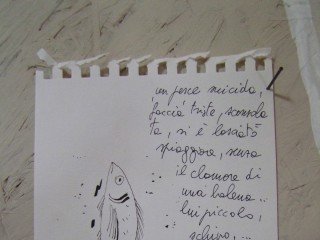 un pesce suicida,
faccia triste, sconsola
ta, si è lasciato
spiaggiare, senza
il clamore di
una balena...
lui piccolo,
schivo, ...